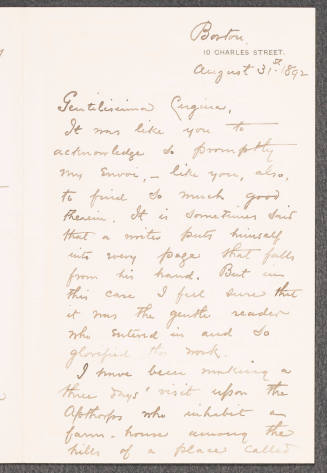 Boston.
10 CHARLES STREET.
August 31st 1892
Gentilissima Cugina,
It was like you to
acknowledge so promptly
my Envoi, – like you, also,
to find so much good
therein. It is sometimes said
that a writer puts himself
into every page that falls
from his hand. But in
this case I feel sure that
it was the gentle reader
who entered in and so
glorified the work.
I have been making a
three days' visit upon the
Apthorps who inhabit a
farm-house among the
hills of a place called